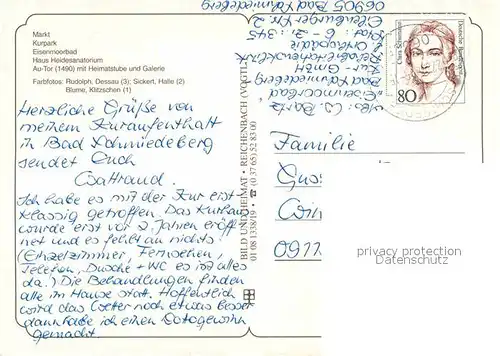 Markt
Kurpark
Eisenmoorbad
Haus Heidesanatorium
Au-Tor (1490) mit Heimatstube und Galerie
Farbfotos: Rudolph, Dessau (3); Sickert, Halle (2)
Blume, Klitzschen (1)
Herzliche Grüße von
meinem Kuraufenthalt
in Bad Schmiedeberg
sendet Euch
Waltraud.
Ich habe es mit der Kur erst-
klassig getroffen. Das Kurhaus
wurde erst vor 2 Jahren eröff
net und es fehlt an nichts!
(Einzelzimmer, Fernsehen,
Telefon, Dusche + WC es ist alles
da.) Die Behandlungen finden
alle im Hause statt. Hoffentlich
wird das Wetter noch etwas besser
dann habe ich einen Lottogewinn
gemacht.
BILD UND HEIMAT • REICHENBACH (VOGTL)
01 08 1338/19 • ☎ (0 37 65) 52 83 00
Abs. W.
"Eisenmoorbad
Bad Schmiedeberg
Kur-GmbH"
Rehabilitationsklinik
f. Orthopädie
Haus: 6 - Zi.: 345
06905 Bad Schmiedeberg
Clara Schumann
Deutsche Bundespost
80
Familie
privacy protection
Datenschutz